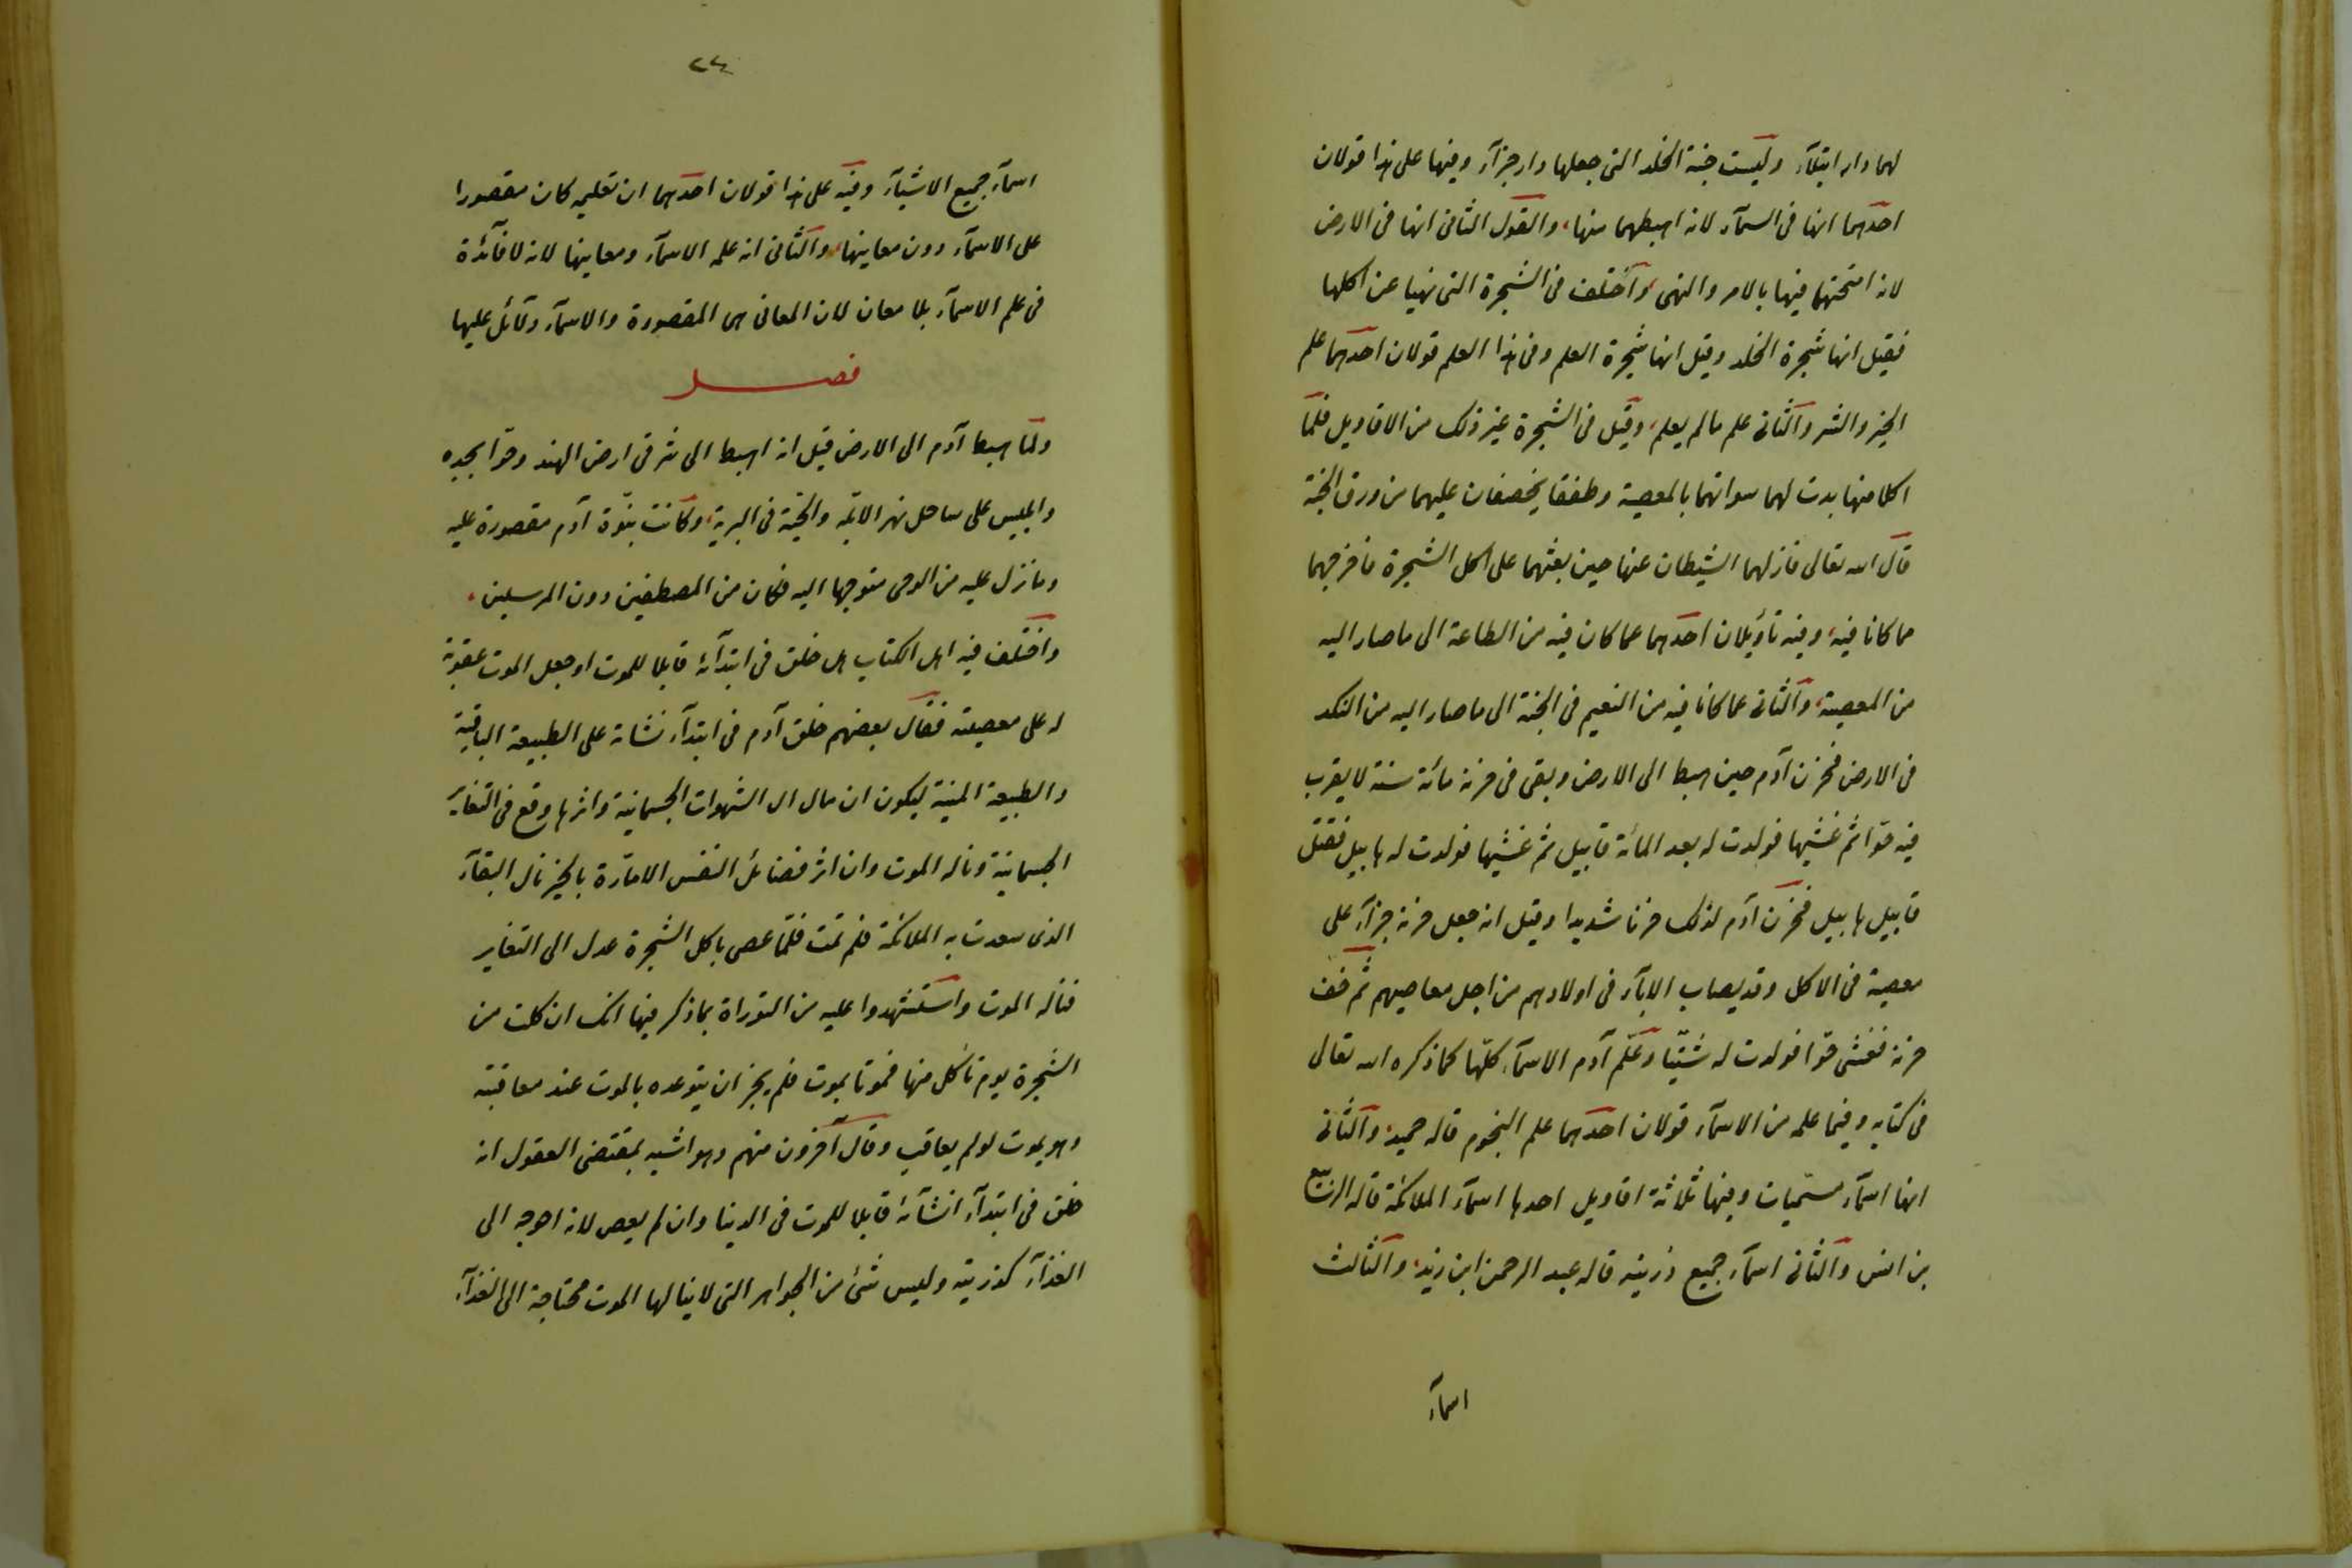 لهما دار ابتلآء وليست جنة الخلد التى جعلها دار جزآء وفيها على هذا قولان
احدهما انها فى السمآء لانه اهبطهما منها، والقول الثانى انها فى الارض
لانه امتحنهما فيها بالامر والنهى، واختلف فى الشجرة التى نهيا عن اكلها
فقيل انها شجرة الخلد وقيل انها شجرة العلم وفى هذا العلم قولان احدهما علم
الخير والشر والثانى علم ما لم يعلم، وقيل فى الشجرة غير ذلك من الاقاويل فلما
اكلا منها بدت لهما سواتهما بالمعصية وطفقا يخصفان عليهما من ورق الجنة
قال الله تعالى فازلهما الشيطان عنها حين بعثهما على اكل الشجرة فاخرجهما
مما كانا فيه، وفيه تأويلان احدهما عما كان فيه من الطاعة الى ما صار اليه
من المعصية، والثانى عما كانا فيه من النعيم فى الجنة الى ما صار اليه من النكد
فى الارض فحزن آدم حين اهبط الى الارض وبقى فى حزنه مائة سنة لا يقرب
فيه حوّا ثم غشيها فولدت له بعد المائة قابيل ثم غشيها فولدت له هابيل فقتل
قابيل هابيل فحزن آدم لذلك حزنا شديدا وقيل انه جعل حزنه جزآء على
معصية فى الاكل وقد يصاب الابآء فى اولادهم من اجل معاصيهم ثم خف
حزنه فغشى حوّا فولدت له شيثا وعلّم آدم الاسمآء كلّها كما ذكره الله تعالى
فى كتابه وفيما علمه من الاسمآء قولان احدهما علم النجوم قاله حميد، والثانى
انها اسمآء مسمّيات وفيها ثلاثة اقاويل احدها اسمآء الملائكة قاله الربيع
بن انس والثانى اسمآء جميع ذريته قاله عبد الرحمن ابن زيد، والثالث
اسمآء
٢٤
اسمآء جميع الاشيآء وفيه على هذا قولان احدهما ان تعليمه كان مقصورا
على الاسمآء دون معانيها، والثانى انه علمه الاسمآء ومعانيها لانه لا فآئدة
فى علم الاسمآء بلا معان لان المعانى هى المقصودة والاسمآء دلآئل عليها
فصل
ولما اهبط آدم الى الارض قيل انه اهبط الى شرقى ارض الهند وحوّا بجده
وابليس على ساحل نهر الابلّه والحيّة فى البرية، وكانت نبوّة آدم مقصورة عليه
وما نزل عليه من الوحى متوجها اليه فكان من المصطفين دون المرسلين،
واختلف فيه اهل الكتاب هل خلق فى ابتدآئه قابلا للموت او جعل الموت عقوبة
له على معصيته فقال بعضهم خلق آدم فى ابتدآء نشاته على الطبيعة الباقية
والطبيعة الميتة ليكون ان مال الى الشهوات الجسمانية واثرها وقع فى التغاير
الجسمانية وناله الموت وان اثر فضائل النفس الامّارة بالخير نال البقآء
الذى سعدت به الملائكة فلم تمت فلمّا عصى باكل الشجرة عدل الى التغاير
فناله الموت واستشهدوا عليه من التوراة بما ذكر فيها انك ان كلت من
الشجرة يوم تأكل منها فموتا يموت فلم يجز ان يتوعده بالموت عند معاقبته
وهو يموت لو لم يعاقب وقال آخرون منهم وهو اشبه بمقتضى العقول انه
خلق فى ابتدآء انشآئه قابلا للموت فى الدنيا وان لم يعص لانه احوجه الى
الغذآء كذريته وليس شئ من الجواهر التى لا ينالها الموت محتاجة الى الغذآء